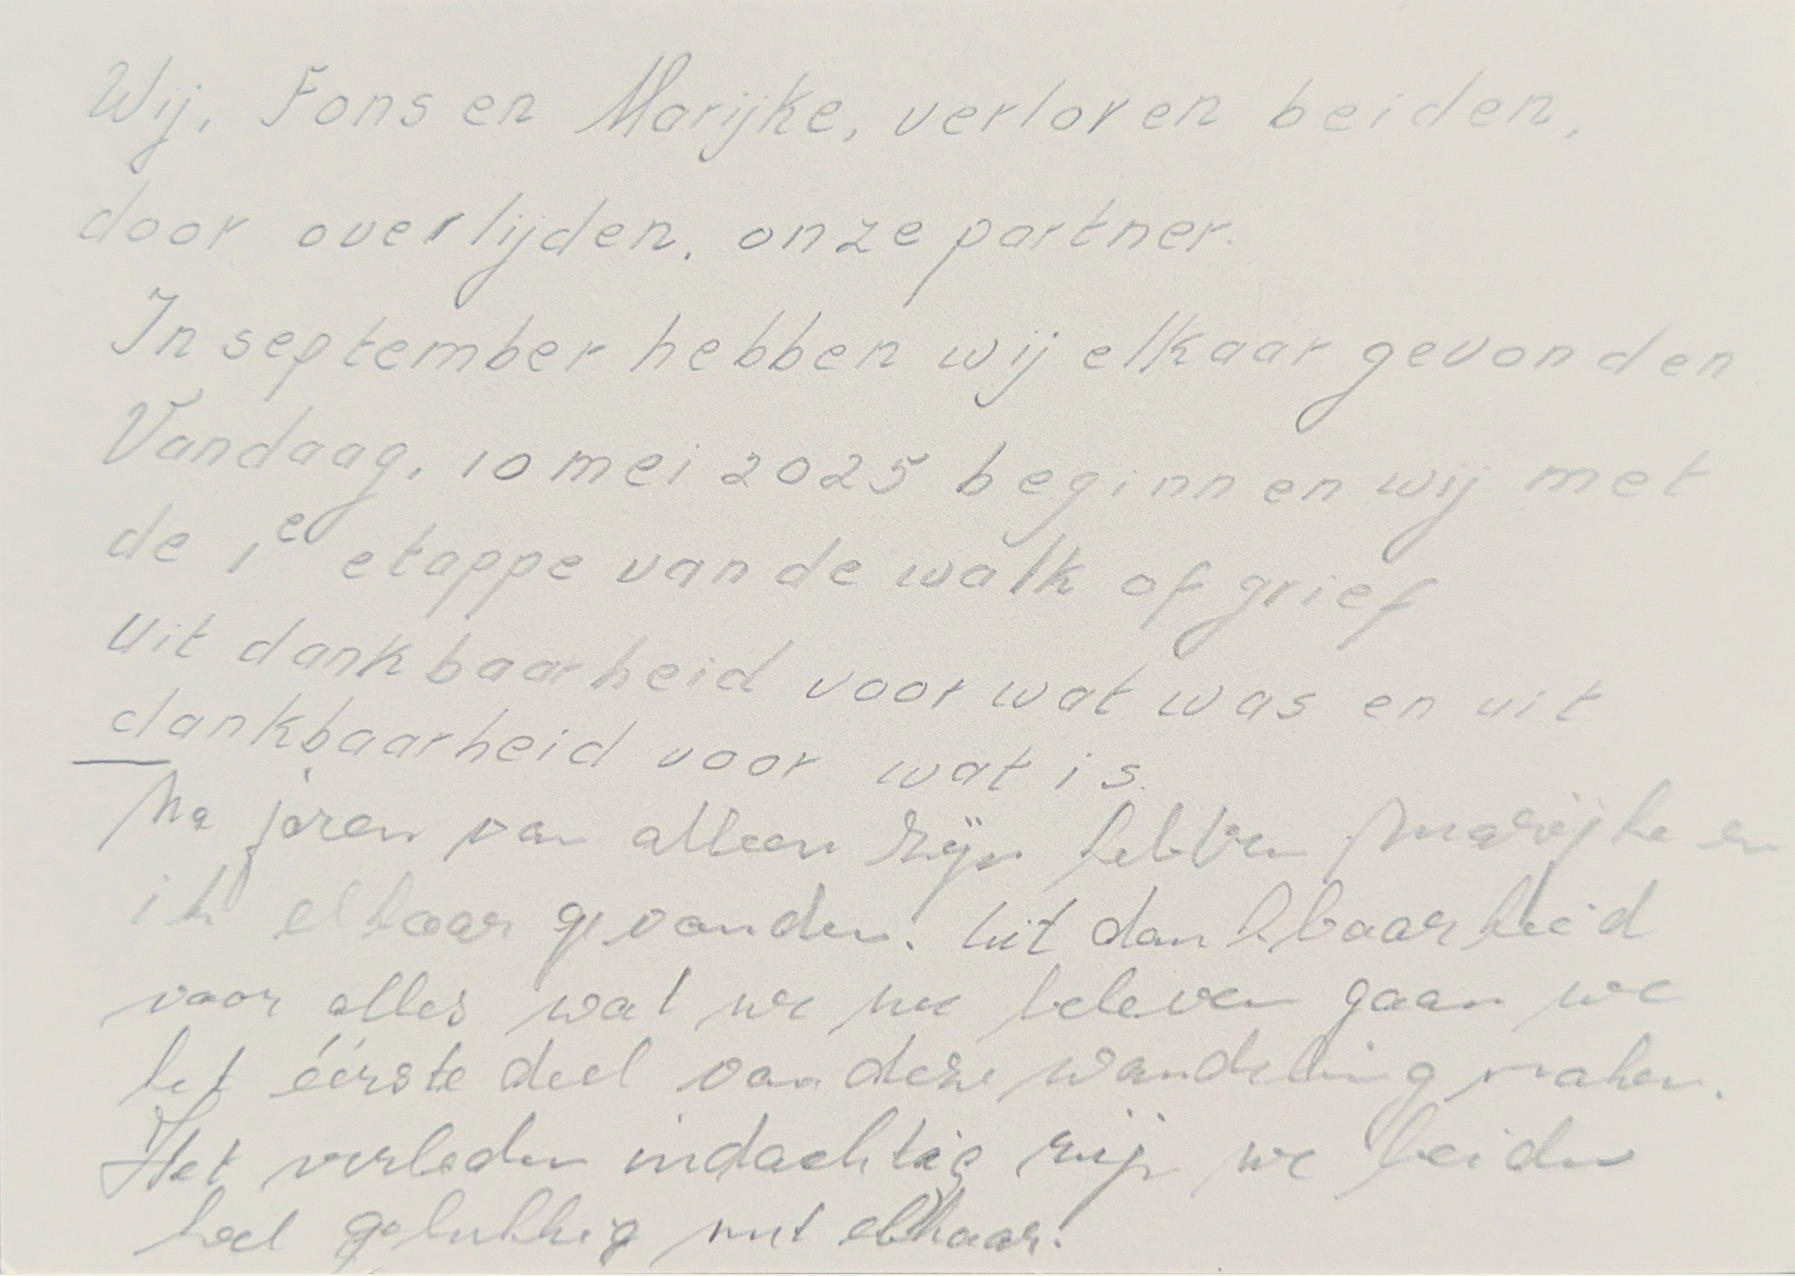 Wij, Fons en Marijke, verloren beiden,
door overlijden, onze partner.
In september hebben wij elkaar gevonden
Vandaag, 10 mei 2025 beginnen wij met
de 1e etappe van de walk of grief
uit dankbaarheid voor wat was en uit
dankbaarheid voor wat is.
Na jaren van alleen zijn hebben Marijke en
ik elkaar gevonden. Uit dankbaarheid
voor alles wat we nu beleven gaan we
het éérste deel van deze wandeling maken.
Het verleden indachtig zijn we beiden
heel gelukkig met elkaar.